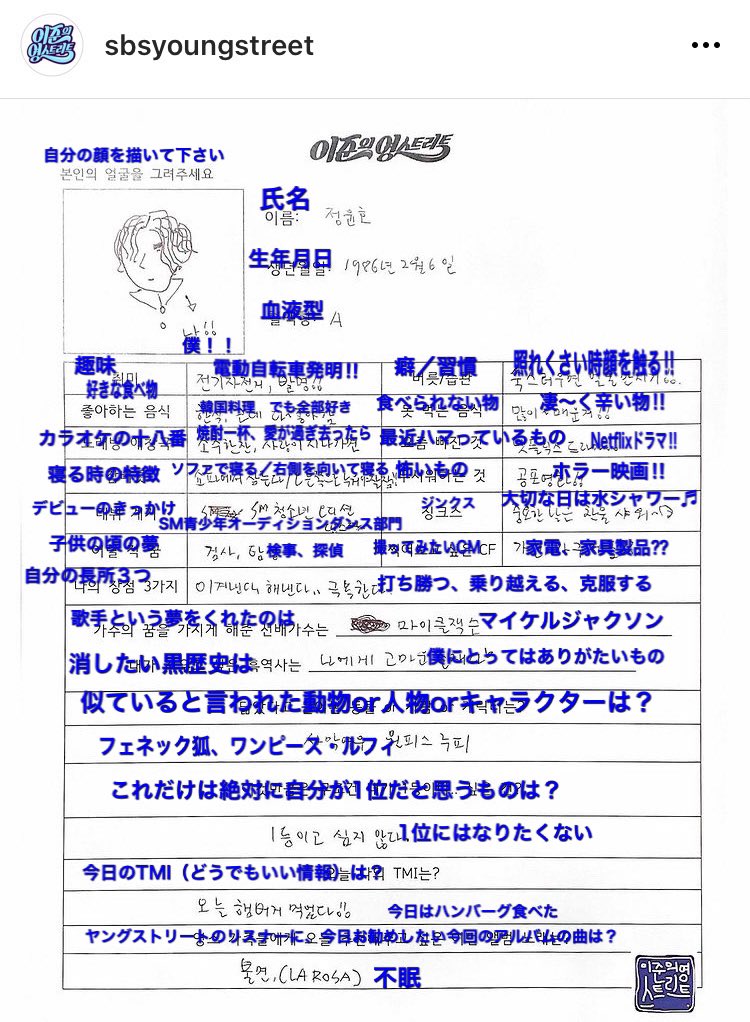 이준의 영스트리트
sbsyoungstreet
이준의 영스트리트
自分の顔を描いて下さい
본인의 얼굴을 그려주세요
氏名
이름: 정윤호
生年月日
생년월일: 1986년 2월 6일
血液型
A
나!!
僕！！
趣味
취미
電動自転車発明!!
전기자전거, 발명!!
癖／習慣
버릇/습관
照れくさい時顔を触る!!
好きな食べ物
좋아하는 음식
韓国料理　でも全部好き
食べられない物
못 먹는 음식
凄〜く辛い物!!
カラオケの十八番
焼酎一杯、愛が過ぎ去ったら
소주한잔, 사랑이 지나가면
最近ハマっているもの
Netflixドラマ!!
寝る時の特徴
ソファで寝る／右側を向いて寝る
怖いもの
ホラー映画!!
공포영화!!
デビューのきっかけ
SM青少年オーディションダンス部門
SM 청소년
ジンクス
징크스
大切な日は水シャワー♬
子供の頃の夢
검사, 탐정
検事、探偵
撮ってみたいCM
CF
家電、家具製品??
自分の長所３つ
나의 장점 3가지
이겨낸다, 해낸다.. 극복한다.
打ち勝つ、乗り越える、克服する
歌手という夢をくれたのは
가수의 꿈을 가지게 해준 선배가수는
마이클잭슨
マイケルジャクソン
消したい黒歴史は
흑역사는
나에게 고마운
僕にとってはありがたいもの
似ていると言われた動物or人物orキャラクターは？
フェネック狐、ワンピース・ルフィ
사막여우, 원피스 루피
これだけは絶対に自分が1位だと思うものは？
1등이고 싶지 않다..
1位にはなりたくない
今日のTMI（どうでもいい情報）は？
오늘 나의 TMI는?
오늘 햄버거 먹었다!!
今日はハンバーグ食べた
ヤングストリートのリスナーに、今日お勧めしたい今回のアルバムの曲は？
불면,(LA ROSA)
不眠
이준의 영스트리트